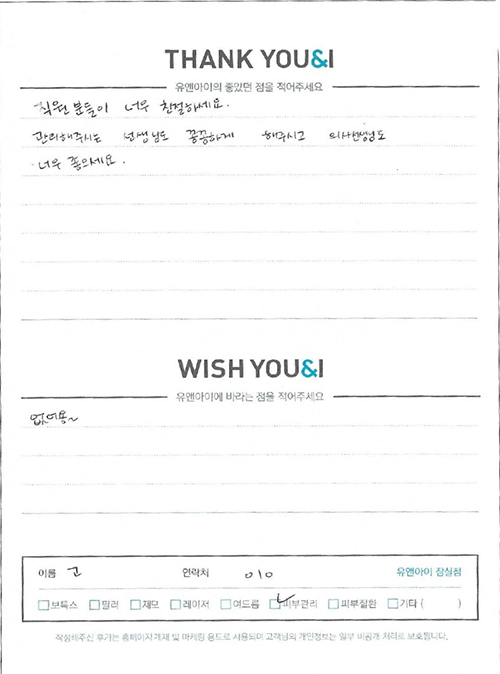 THANK YOU&I
유앤아이의 좋았던 점을 적어주세요
직원 분들이 너우 친절하세요.
관리해주시는 선생님도 꼼꼼하게 해주시고 의사선생님도
너우 좋으세요.
WISH YOU&I
유앤아이에 바라는 점을 적어주세요
없어용~
이름 고 연락처 010 유앤아이 잠실점
보톡스 필러 제모 레이저 여드름 피부관리 피부질환 기타 ( )
작성해주신 후기는 홈페이지 게재 및 마케팅 용도로 사용되며 고객님의 개인정보는 일부 비공개 처리로 보호됩니다.